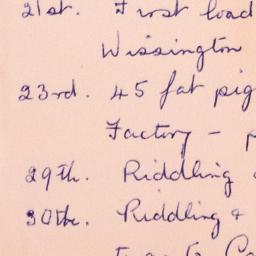 21st. First load
Wissington
23rd. 45 fat pig
Factory –
29th. Riddling
30th. Riddling &